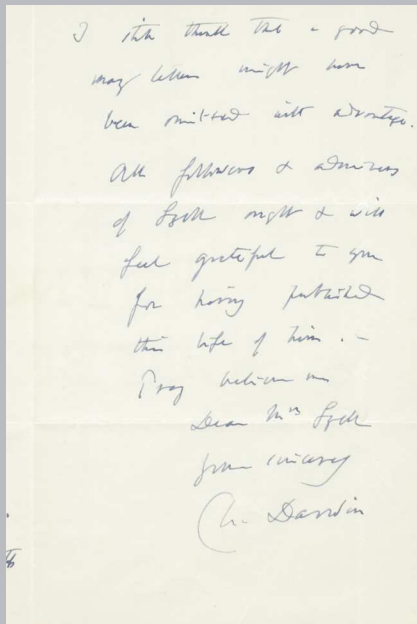 I still think that a good
many letters might have
been omitted with advantage.
All followers & admirers
of Lyell ought & will
feel grateful to you
for having published
this life of him. —
Pray believe me
Dear Mrs Lyell
Yours sincerely
Ch. Darwin